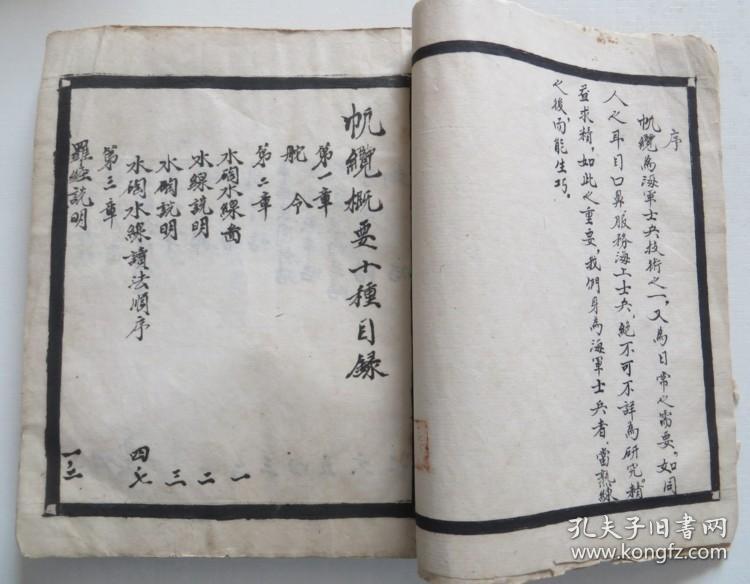 序
帆纜為海軍士兵技術之一，又為日常之需要，如同
人之耳目口鼻服務海上士兵，絕不可不詳為研究精
益求精，如此之重要，我們身為海軍士兵者，當熟練
之後，而能生巧。
帆纜概要十種目録
第一章
舵令 一
第二章
水砣水線 二
水線説明 三
水砣説明
水砣水線讀法順序 四 七
第三章
羅經説明 一二
孔夫子旧书网
www.kongfz.com